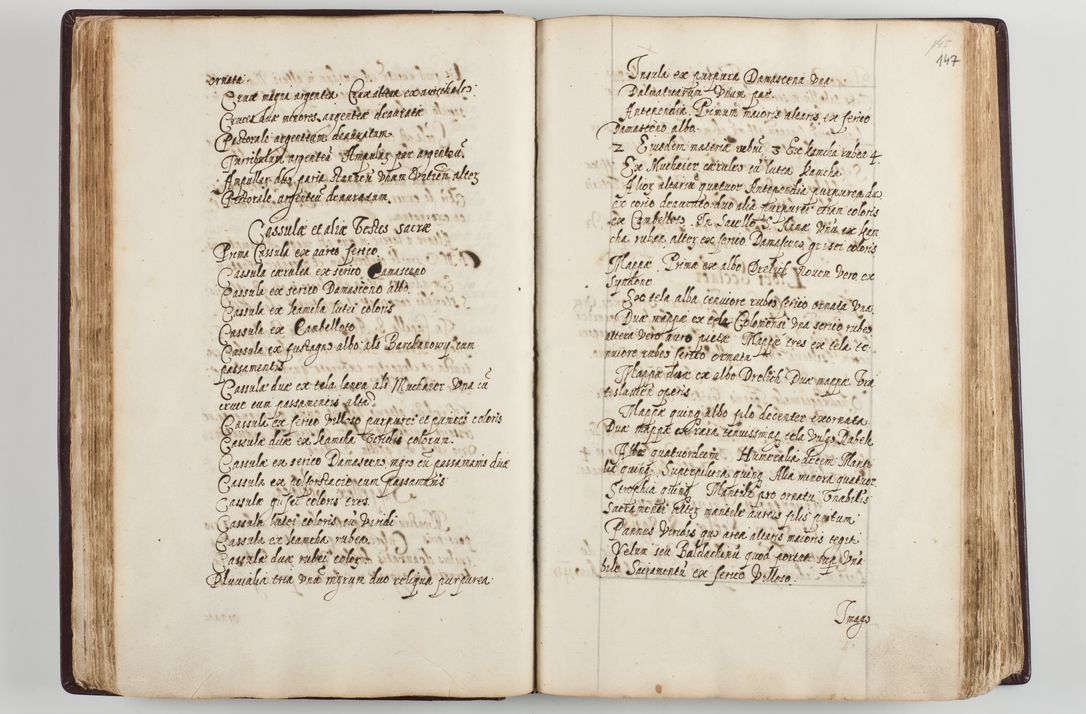 ornata.
Crux magna argentea Crux altera ex aurichalco:
Cruces duæ minores argenteæ deauratæ
Pastorale argenteum deauratum.
Turribulum argenteū Ampular: par argenteū.
Ampullar: duo paria stannea unum vitreū alter
Pectorale argenteū deauratum.
Cassulæ et aliæ Vestes sacræ
Prima Cassula ex aureo serico.
Cassula cærulea ex serico Damasceno
Cassula ex serico Damasceno albo.
Cassula ex kamcha lutei coloris
Cassula ex Cambelloto
Cassula ex fustagno albo als Barchanowy cum
passamentis
Cassulæ duæ ex tela lanea als Muchaier una cū
cruce cum passamentis alta
Cassula ex serico villoso purpurei et punicei coloris
Cassulæ duæ ex kamcha viridis colorum.
Cassula ex serico Damasceno nigro cū passamanis duæ
Cassula ex cum passamanis
Cassulæ grisei coloris tres.
Cassula lutei coloris cū viridi
Cassula ex kamcha rubeo.
Cassulæ duæ rubei coloris
Pluvialia tria una nigrum duo reliqua purpurea.
147
Insula ex purpura Damascena una
Dalmaticarum unum par.
Antependia. Primum maioris altaris ex serico
Damasceno albo.
2 Eiusdem materiæ rubeū 3 Ex kamcha rubea 4
Ex Muchaier cæruleo cū lutea kamcha
Alior altaria quatuor Antependia purpurea da
ex corio deaurato duo alia purpurei etiam coloris
ex Cambelloto. In Sacello S. Annæ unū ex kam
cha rubea alter ex serico Damasceno grisei coloris
Mappæ. Prima ex albo Drelich Novem vero ex
syndone
Ex tela alba tenuiore rubeo serico ornata una.
Duæ mappæ ex tela Coloniensi una serico rubeo
altera vero auro pictæ Mappæ tres ex tela te
nuiore rubeo serico ornatæ
Mappæ duæ ex albo Drelich Duæ mappæ Vra
tislavien operis
Mappæ quinq albo filo decenter exornata
Duæ mappæ ex tenuissima tela vulgo Rabek
Albæ quatuordecim Humeralia decem Mani
quinq Superpelicea quinq Alia minora quatuor
quinq Mantile pro ornatu Venabilis
Sacramenti alter mantile aureis filis pictum
Pannus viridis quo area altaris maioris tegit
Velum seu Baldachinū quod portat sup Vna
bile Sacramentū ex serico villoso.
Imago